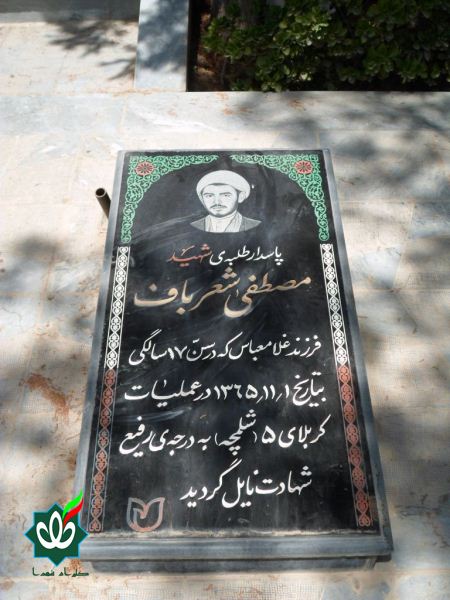 پاسدار طلبه‌ی شهید
مصطفی شعرباف
فرزند غلامعباس که در سن ۱۷ سالگی
بتاریخ ۱۳۶۵٫۱۱٫۱ در عملیات
کربلای ۵ (شلمچه) به درجه‌ی رفیع
شهادت نایل گردید